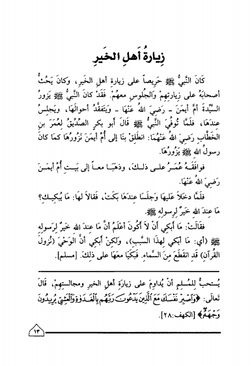 زيارةُ أهلِ الخيرِ
كَانَ النَّبِيُّ ﷺ حَرِيصاً عَلَى زِيَارَةِ أَهْلِ الْخَيْرِ، وَكَانَ يَحُثُّ
أَصْحَابَهُ عَلَى زِيَارَتِهِمْ وَالْجُلُوسِ مَعَهُمْ. فَقَدْ كَانَ النَّبِيُّ ﷺ يَزُورُ
السَّيِّدَةَ أُمَّ أَيْمَنَ - رَضِيَ اللهُ عَنْهَا - وَيَتَفَقَّدُ أَحْوَالَهَا، وَيَجْلِسُ
عِنْدَهَا، فَلَمَّا تُوُفِّيَ النَّبِيُّ ﷺ قَالَ أَبُو بَكْرٍ الصِّدِّيقُ لِعُمَرَ بْنِ
الْخَطَّابِ رَضِيَ اللهُ عَنْهُمَا: انْطَلِقْ بِنَا إِلَى أُمِّ أَيْمَنَ نَزُورُهَا كَمَا كَانَ
رَسُولُ اللهِ ﷺ يَزُورُهَا.
فَوَافَقَهُ عُمَرُ عَلَى ذَلِكَ، وَذَهَبَا مَعاً إِلَى بَيْتِ أُمِّ أَيْمَنَ
رَضِيَ اللهُ عَنْهَا.
فَلَمَّا دَخَلَا عَلَيْهَا وَجَلَسَا عِنْدَهَا بَكَتْ، فَقَالَا لَهَا: مَا يُبْكِيكِ؟
مَا عِنْدَ اللهِ خَيْرٌ لِرَسُولِهِ ﷺ.
فَقَالَتْ: مَا أَبْكِي أَنْ لَا أَكُونَ أَعْلَمُ أَنَّ مَا عِنْدَ اللهِ خَيْرٌ لِرَسُولِهِ
ﷺ (أي: مَا أَبْكِي لِهَذَا السَّبَبِ)، وَلَكِنْ أَبْكِي أَنَّ الْوَحْيَ (نُزُولَ
القُرآنِ) قَدِ انْقَطَعَ مِنَ السَّمَاءِ. فَبَكَيَا مَعَهَا عَلَى ذَلِكَ. [مسلم].
يُستحبُّ للمُسلِمِ أنْ يُداوِمَ على زِيارةِ أهلِ الخيرِ ومجالستِهِمْ، قالَ
تَعالَى: ﴿وَاصْبِرْ نَفْسَكَ مَعَ الَّذِينَ يَدْعُونَ رَبَّهُم بِالْغَدَوٰةِ وَالْعَشِيِّ يُرِيدُونَ
وَجْهَهُ﴾ [الكهف: ٢٨].
١٣